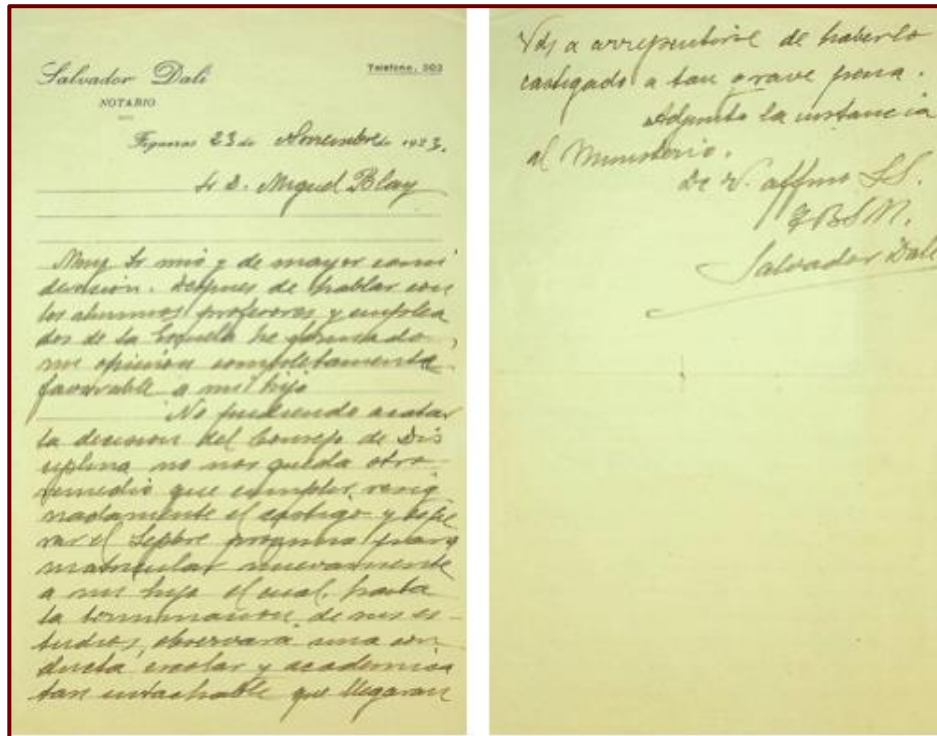 Salvador Dalí
Telefono, 503
NOTARIO
Figueras 23 de Noviembre de 1923.
Sr D. Miguel Blay
Muy Sr mio y de mayor consi
deración. Despues de hablar con
los alumnos, profesores y emplea
dos de la Escuela he formado
mi opinion completamente
favorable a mi hijo
No pudiendo acatar
la decision del Consejo de Dis
ciplina no nos queda otro
remedio que cumplir resig
nadamente el castigo y espe
rar el Sepbre proximo para
matricular nuevamente
a mi hijo el cual, hasta
la terminación de sus es-
tudios, observará una con
ducta escolar y academica
tan intachable que llegaran
Vds a arrepentirse de haberlo
castigado a tan grave pena.
Adjunto la instancia
al Ministerio.
De V. affmo SS.
q B S M.
Salvador Dalí